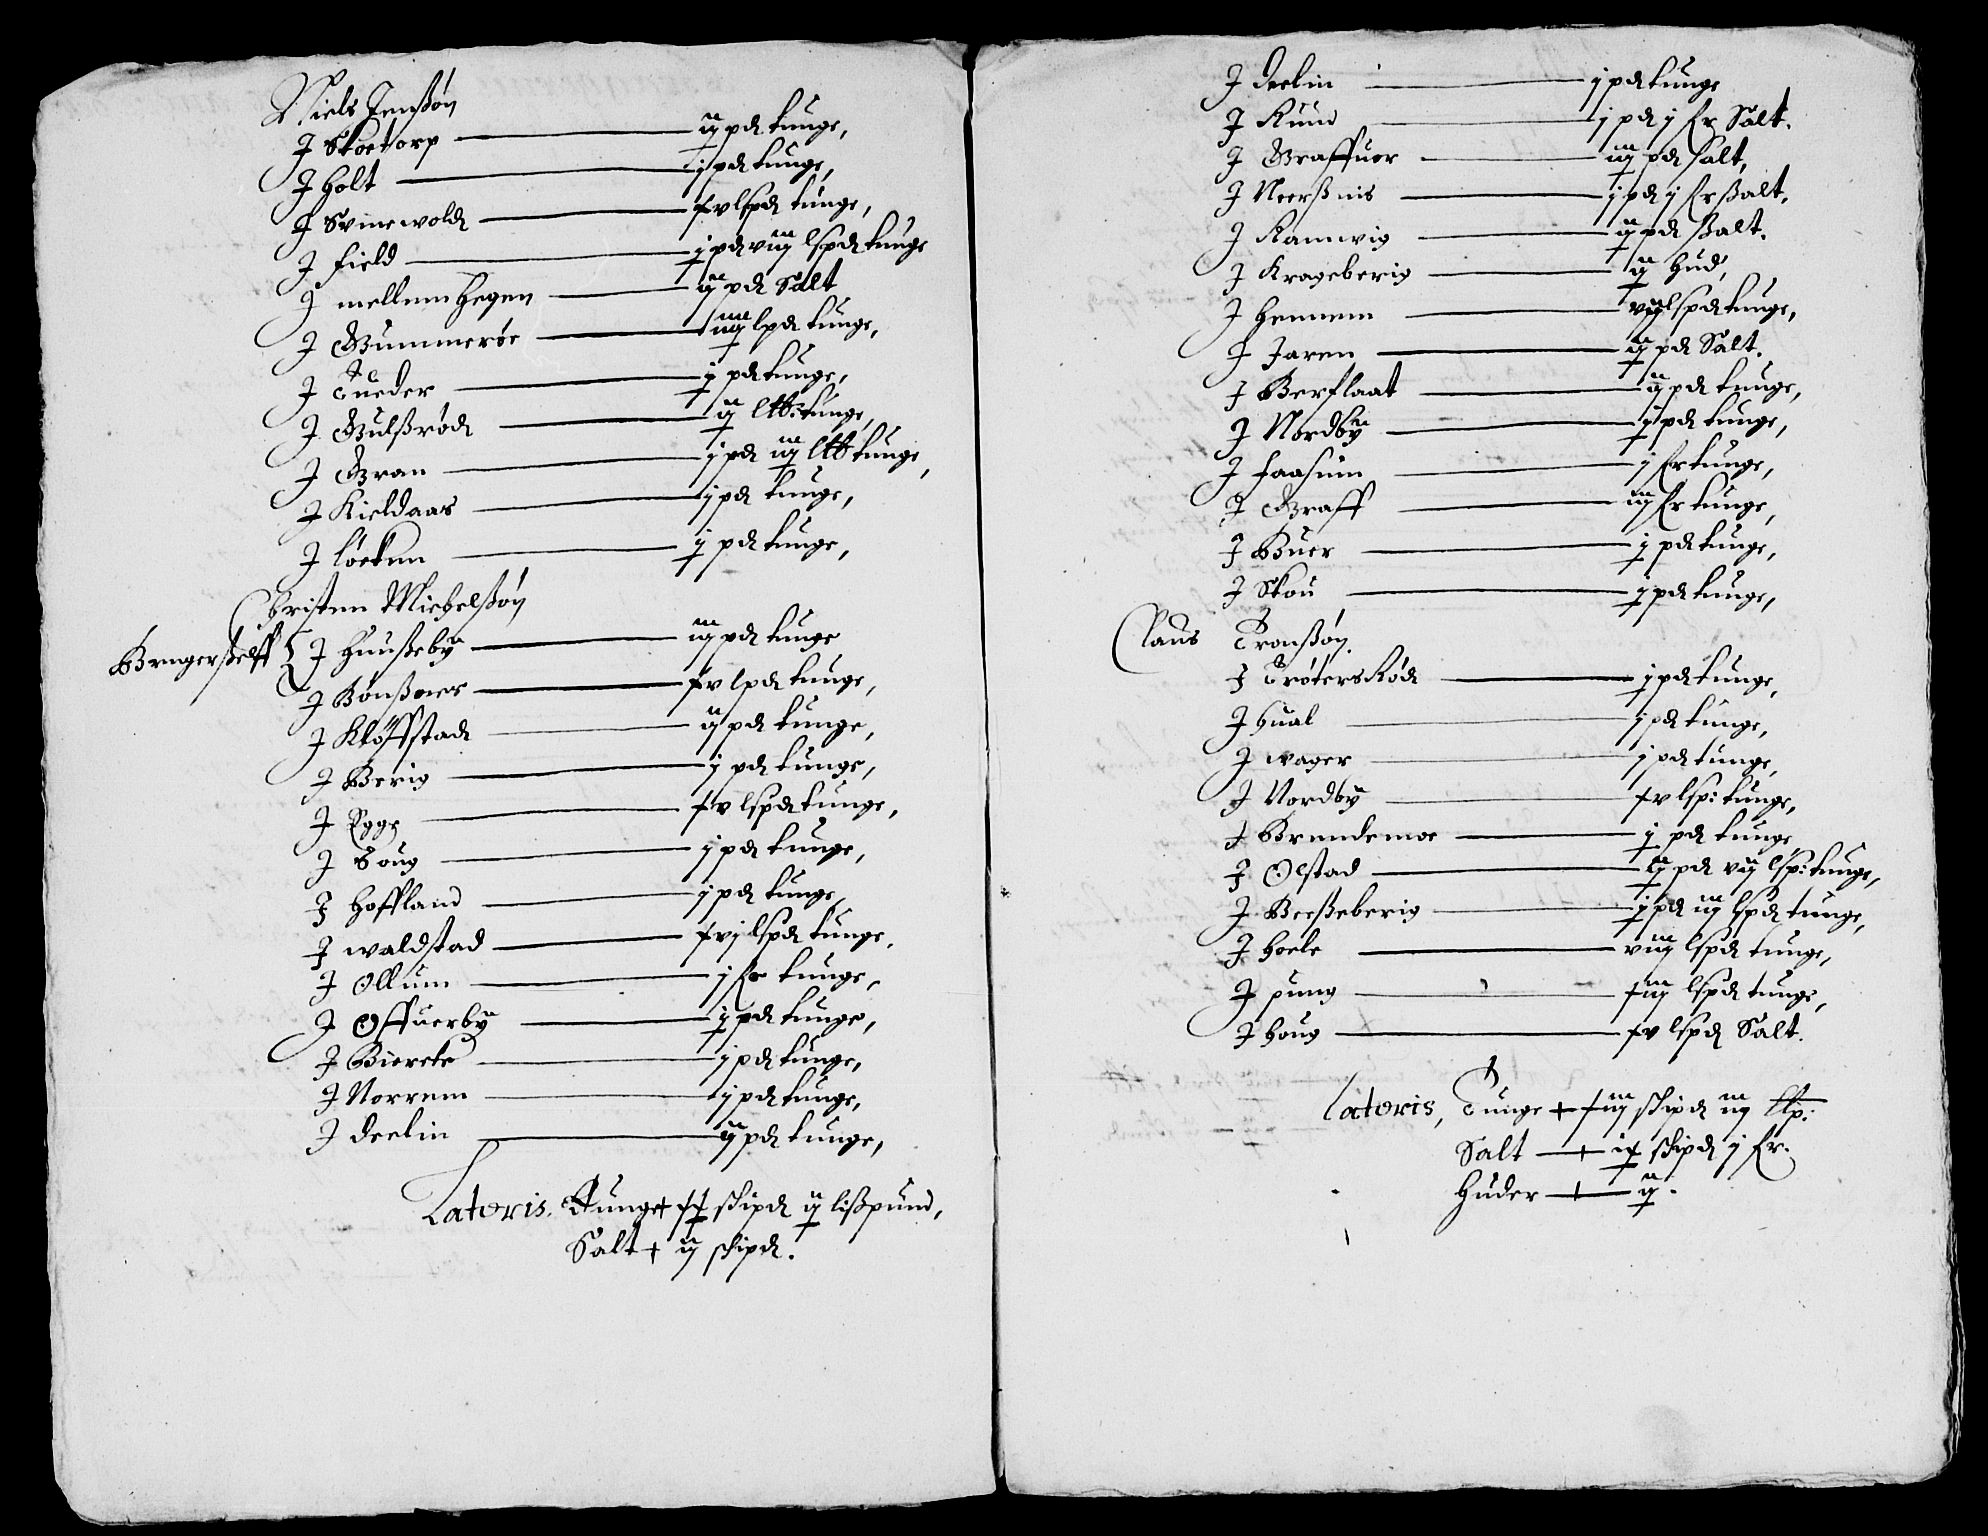 Niels Jenßøn
J Skoetorp — ij pd tunge,
J Holt — j pd tunge,
J Svinewold — xv lspd tunge,
J Field — j pd viij lspd tunge
J mellem Hegen — ij pd Salt
J Gummerøe — iiij lspd tunge,
J Tueder — j pd tunge,
J Gulßrød — ij ltt: tunge,
J Gran — j pd iij ltt tunge,
J Kieldaas — j pd tunge,
J Løeken — j pd tunge,
Christen Michelßøn
Brngerßelff { J Huußeby — iij pd tunge
J Bonßnes — xv lpd tunge,
J Kløffstad — ij pd tunge,
J Berig — j pd tunge,
J Egge — xv lspd tunge,
J Houg — j pd tunge,
J Hoffland — j pd tunge,
J waldstad — xvj lspd tunge,
J Ollum — j fr tunge,
J Offuerby — j pd tunge,
J Biercke — j pd tunge,
J Norrem — j pd tunge,
J deelin — ij pd tunge,
Lateris. Tunge + xx skipd ij lißpund,
Salt + ij skipd.
J deelin — j pd tunge
J Rund — j pd j fr Salt.
J Graffuer — iij pd salt,
J Neerßnis — j pd j fr ßalt,
J Ramwig — ij pd ßalt.
J Krageberig — ij hud,
J Hennem — vij lspd tunge,
J Jaren — ij pd Salt.
J Berflaat — ij pd tunge,
J Nordby — j pd tunge,
J faasum — j fr tunge,
J Graff — iij fr tunge,
J Buer — j pd tunge,
J Skou — j pd tunge,
Claus Tronßøn.
J Trøterskød — j pd tunge,
J Hual — j pd tunge,
J wager — j pd tunge,
J Nordby — xv lsp: tunge,
J Brendemoe — j pd tunge,
J Olstad — ij pd vij lsp: tunge,
J Beeßeberig — j pd iij lspd tunge,
J Hoele — viij lspd tunge,
J pung — xiij lspd tunge,
J Houg — xv lspd Salt.
Lateris, Tunge + xiij skipd iij llp:
Salt — + ix skipd j fr.
Huder — + ij.